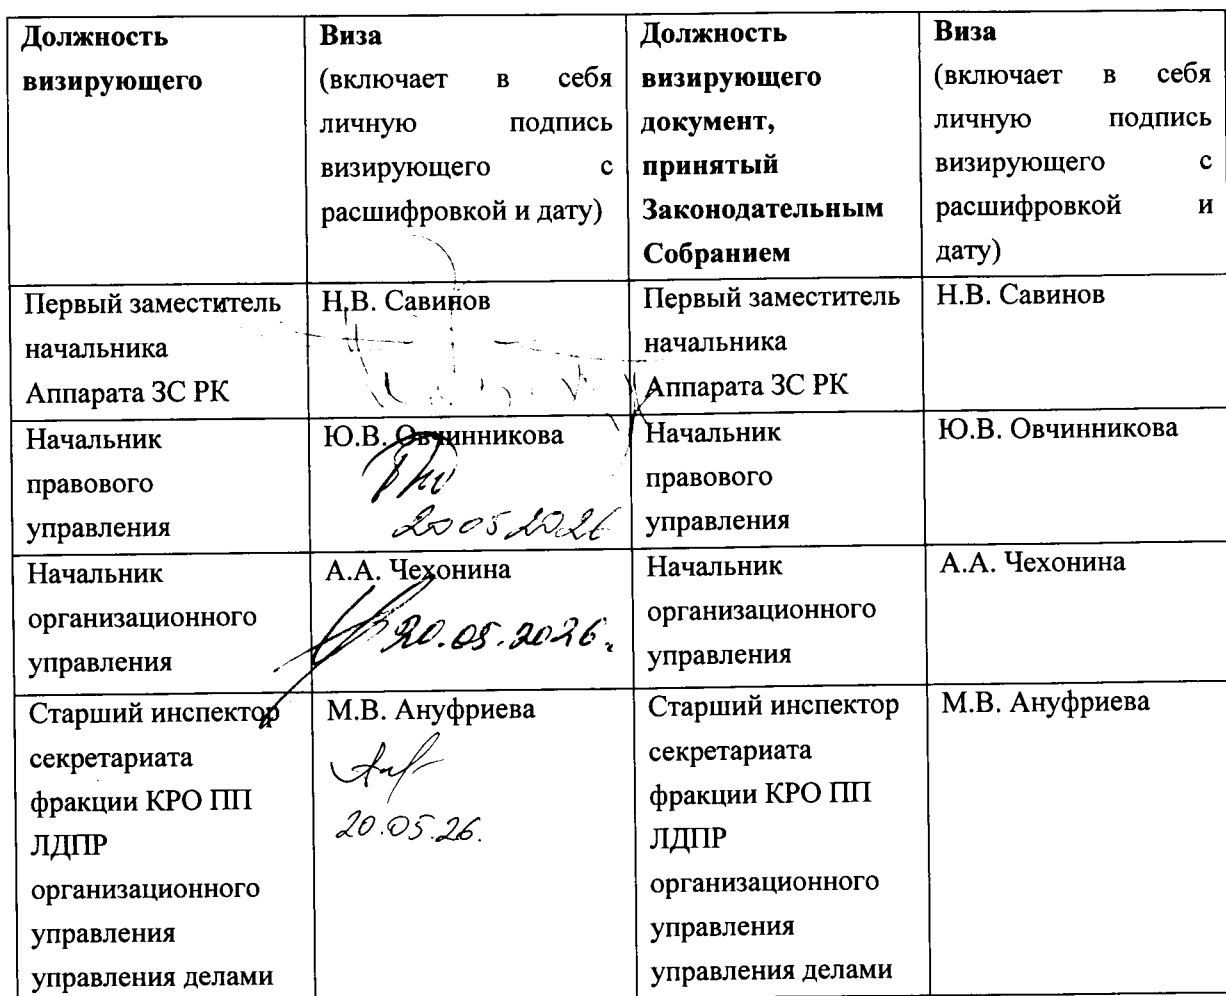 Должность
визирующего
Виза
(включает в себя
личную подпись
визирующего с
расшифровкой и дату)
Должность
визирующего
документ,
принятый
Законодательным
Собранием
Виза
(включает в себя
личную подпись
визирующего с
расшифровкой и
дату)
Первый заместитель
начальника
Аппарата ЗС РК
Н.В. Савинов
Первый заместитель
начальника
Аппарата ЗС РК
Н.В. Савинов
Начальник
правового
управления
Ю.В. Овчинникова
20 05 2026
Начальник
правового
управления
Ю.В. Овчинникова
Начальник
организационного
управления
А.А. Чехонина
20.05.2026.
Начальник
организационного
управления
А.А. Чехонина
Старший инспектор
секретариата
фракции КРО ПП
ЛДПР
организационного
управления
управления делами
М.В. Ануфриева
20.05.26.
Старший инспектор
секретариата
фракции КРО ПП
ЛДПР
организационного
управления
управления делами
М.В. Ануфриева